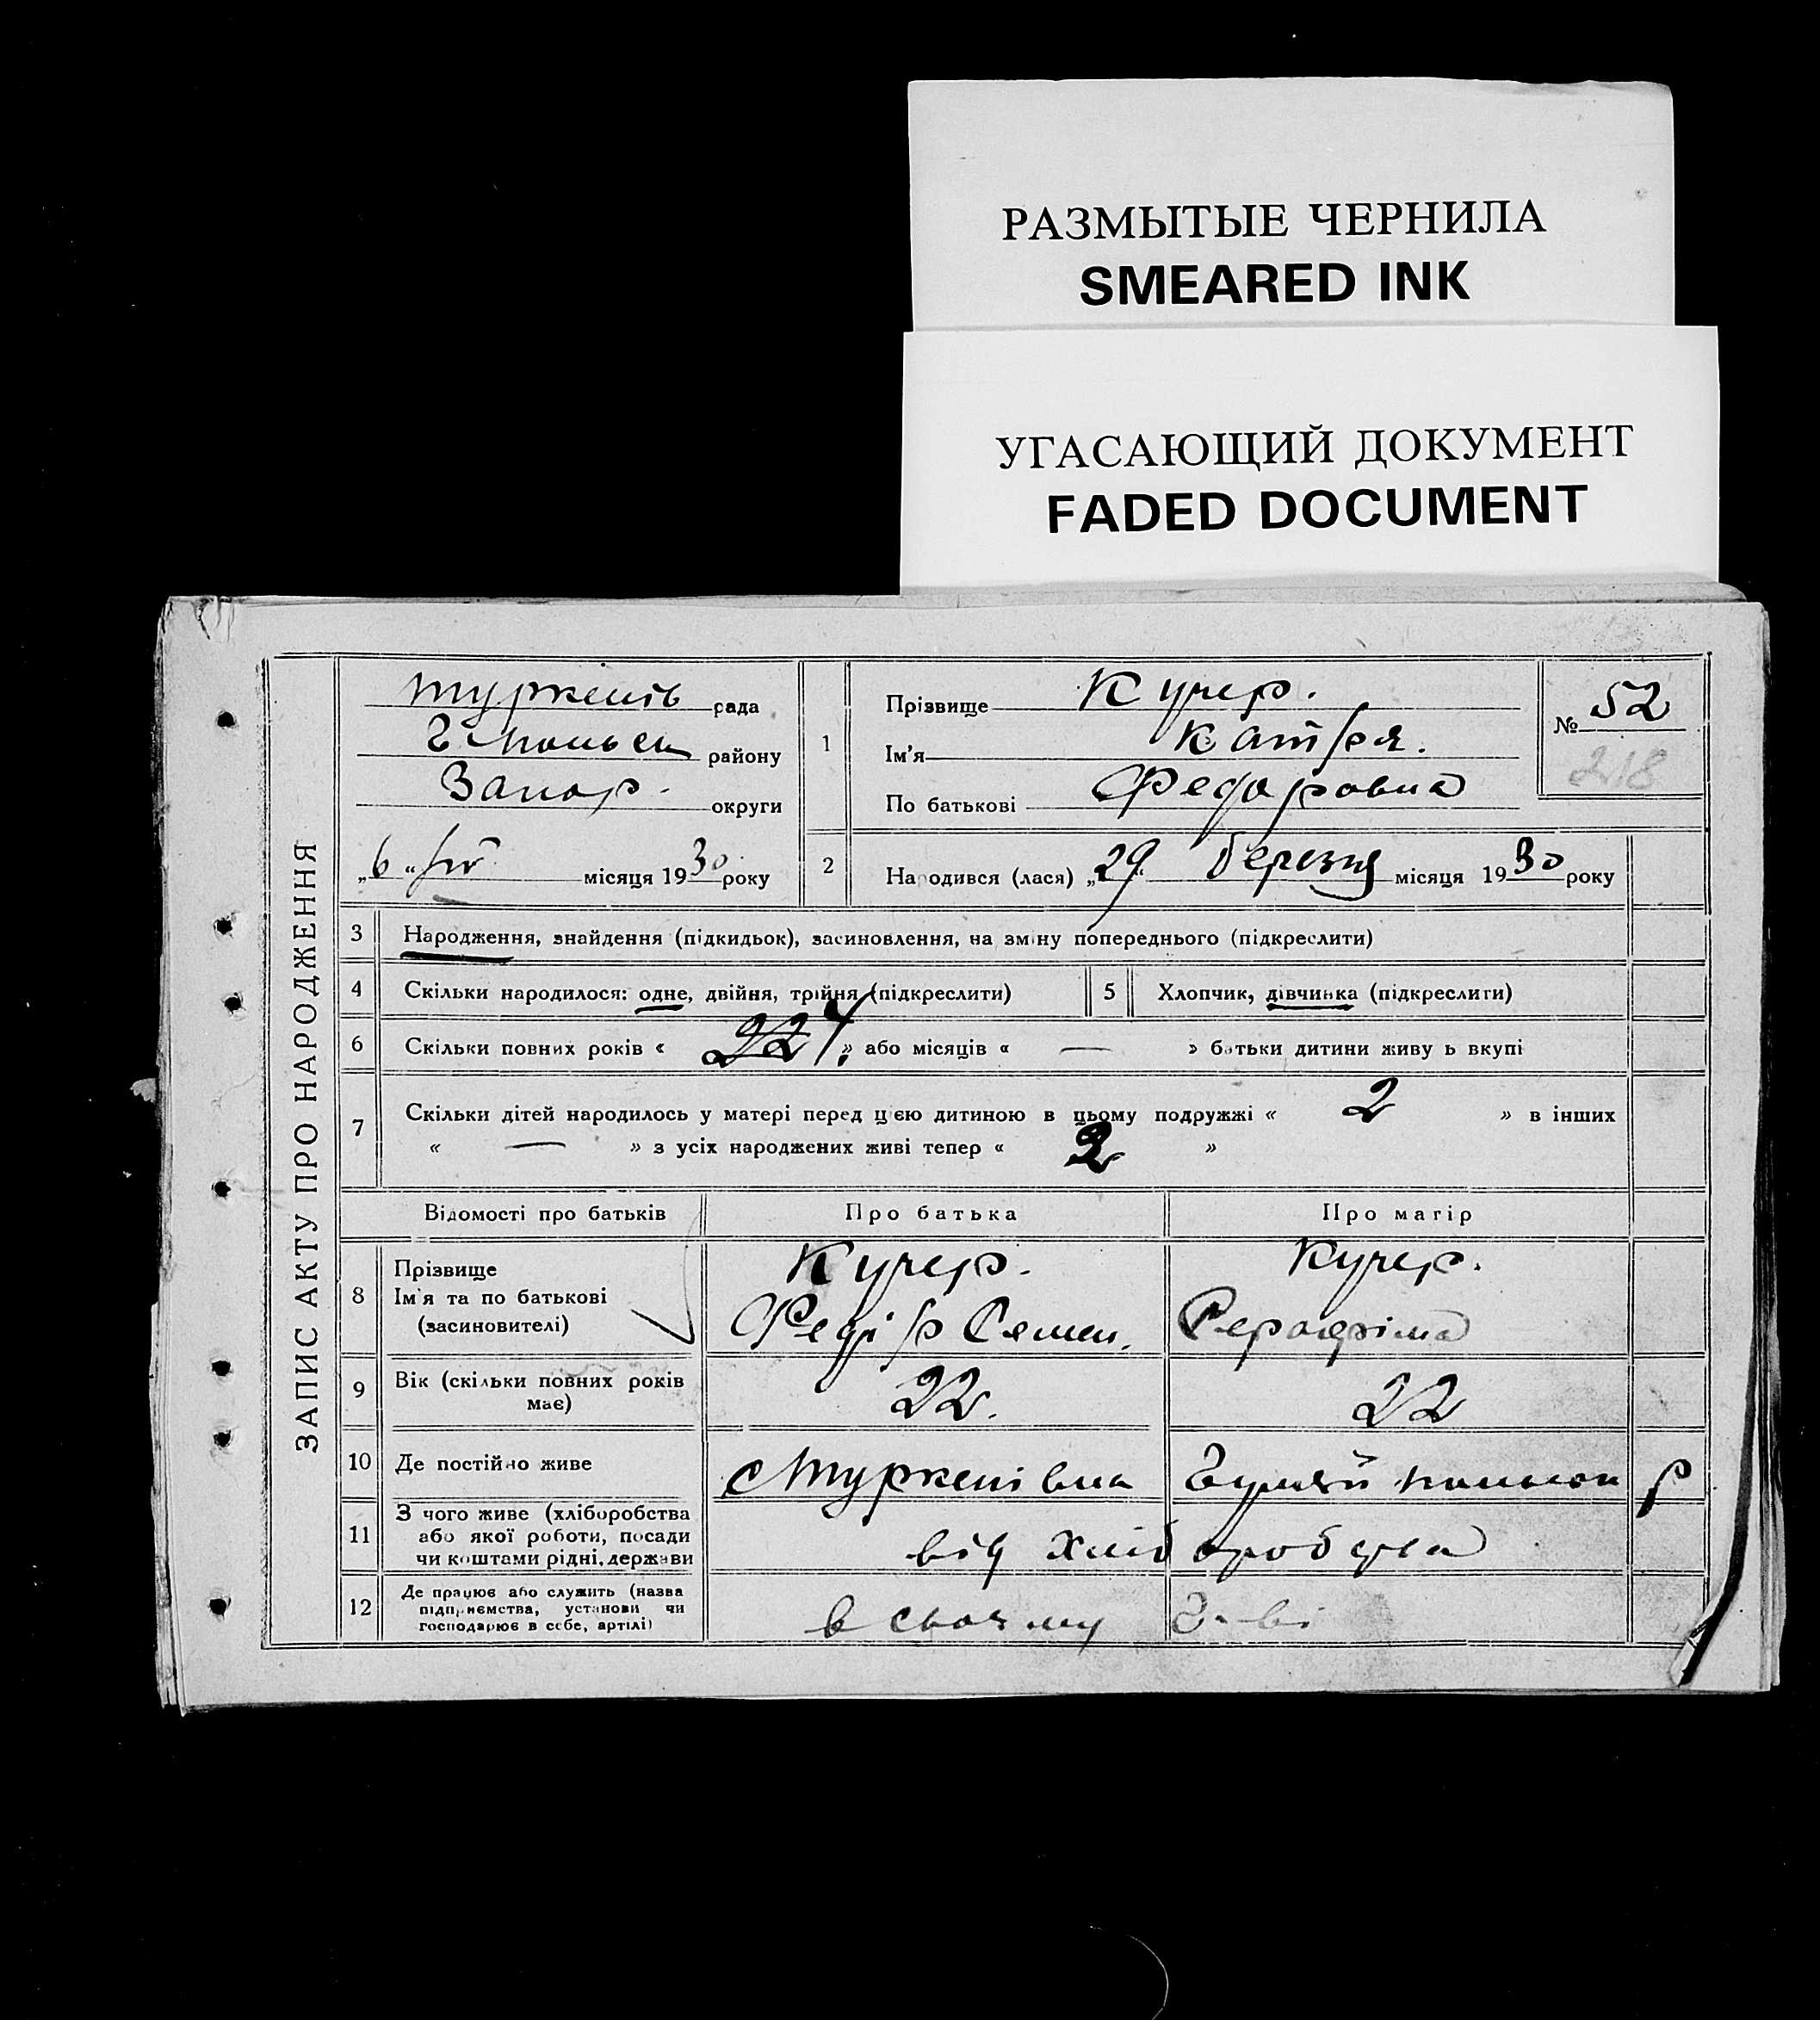 РАЗМЫТЫЕ ЧЕРНИЛА
SMEARED INK
УГАСАЮЩИЙ ДОКУМЕНТ
FADED DOCUMENT
ЗАПИС АКТУ ПРО НАРОДЖЕННЯ
Туркенів рада
району
Запор. округи
„6“ місяця 1930 року
1
Прізвище Кучер.
Ім'я Катря.
По батькові Федоровна
№ 52
218
2
Народився (лася) „29“ березня місяця 1930 року
3 Народження, знайдення (підкидьок), засиновлення, на зміну попереднього (підкреслити)
4 Скільки народилося: одне, двійня, трійня (підкреслити)
5 Хлопчик, дівчинка (підкреслити)
6 Скільки повних років « 22 4 » або місяців « — » батьки дитини живуть вкупі
7 Скільки дітей народилось у матері перед цією дитиною в цьому подружжі « 2 » в інших
« — » з усіх народжених живі тепер « 2 »
Відомості про батьків Про батька Про матір
8 Прізвище Кучер. Кучер.
Ім'я та по батькові Федір Семен. Серафіма
(засиновителі)
9 Вік (скільки повних років має) 22. 22
10 Де постійно живе с Туркенівка Гуляй польск р
11 З чого живе (хліборобства
або якої роботи, посади
чи коштами рідні, держави
від хліборобства
12 Де працює або служить (назва
підприємства, установи чи
господарює в себе, артілі)
в своему